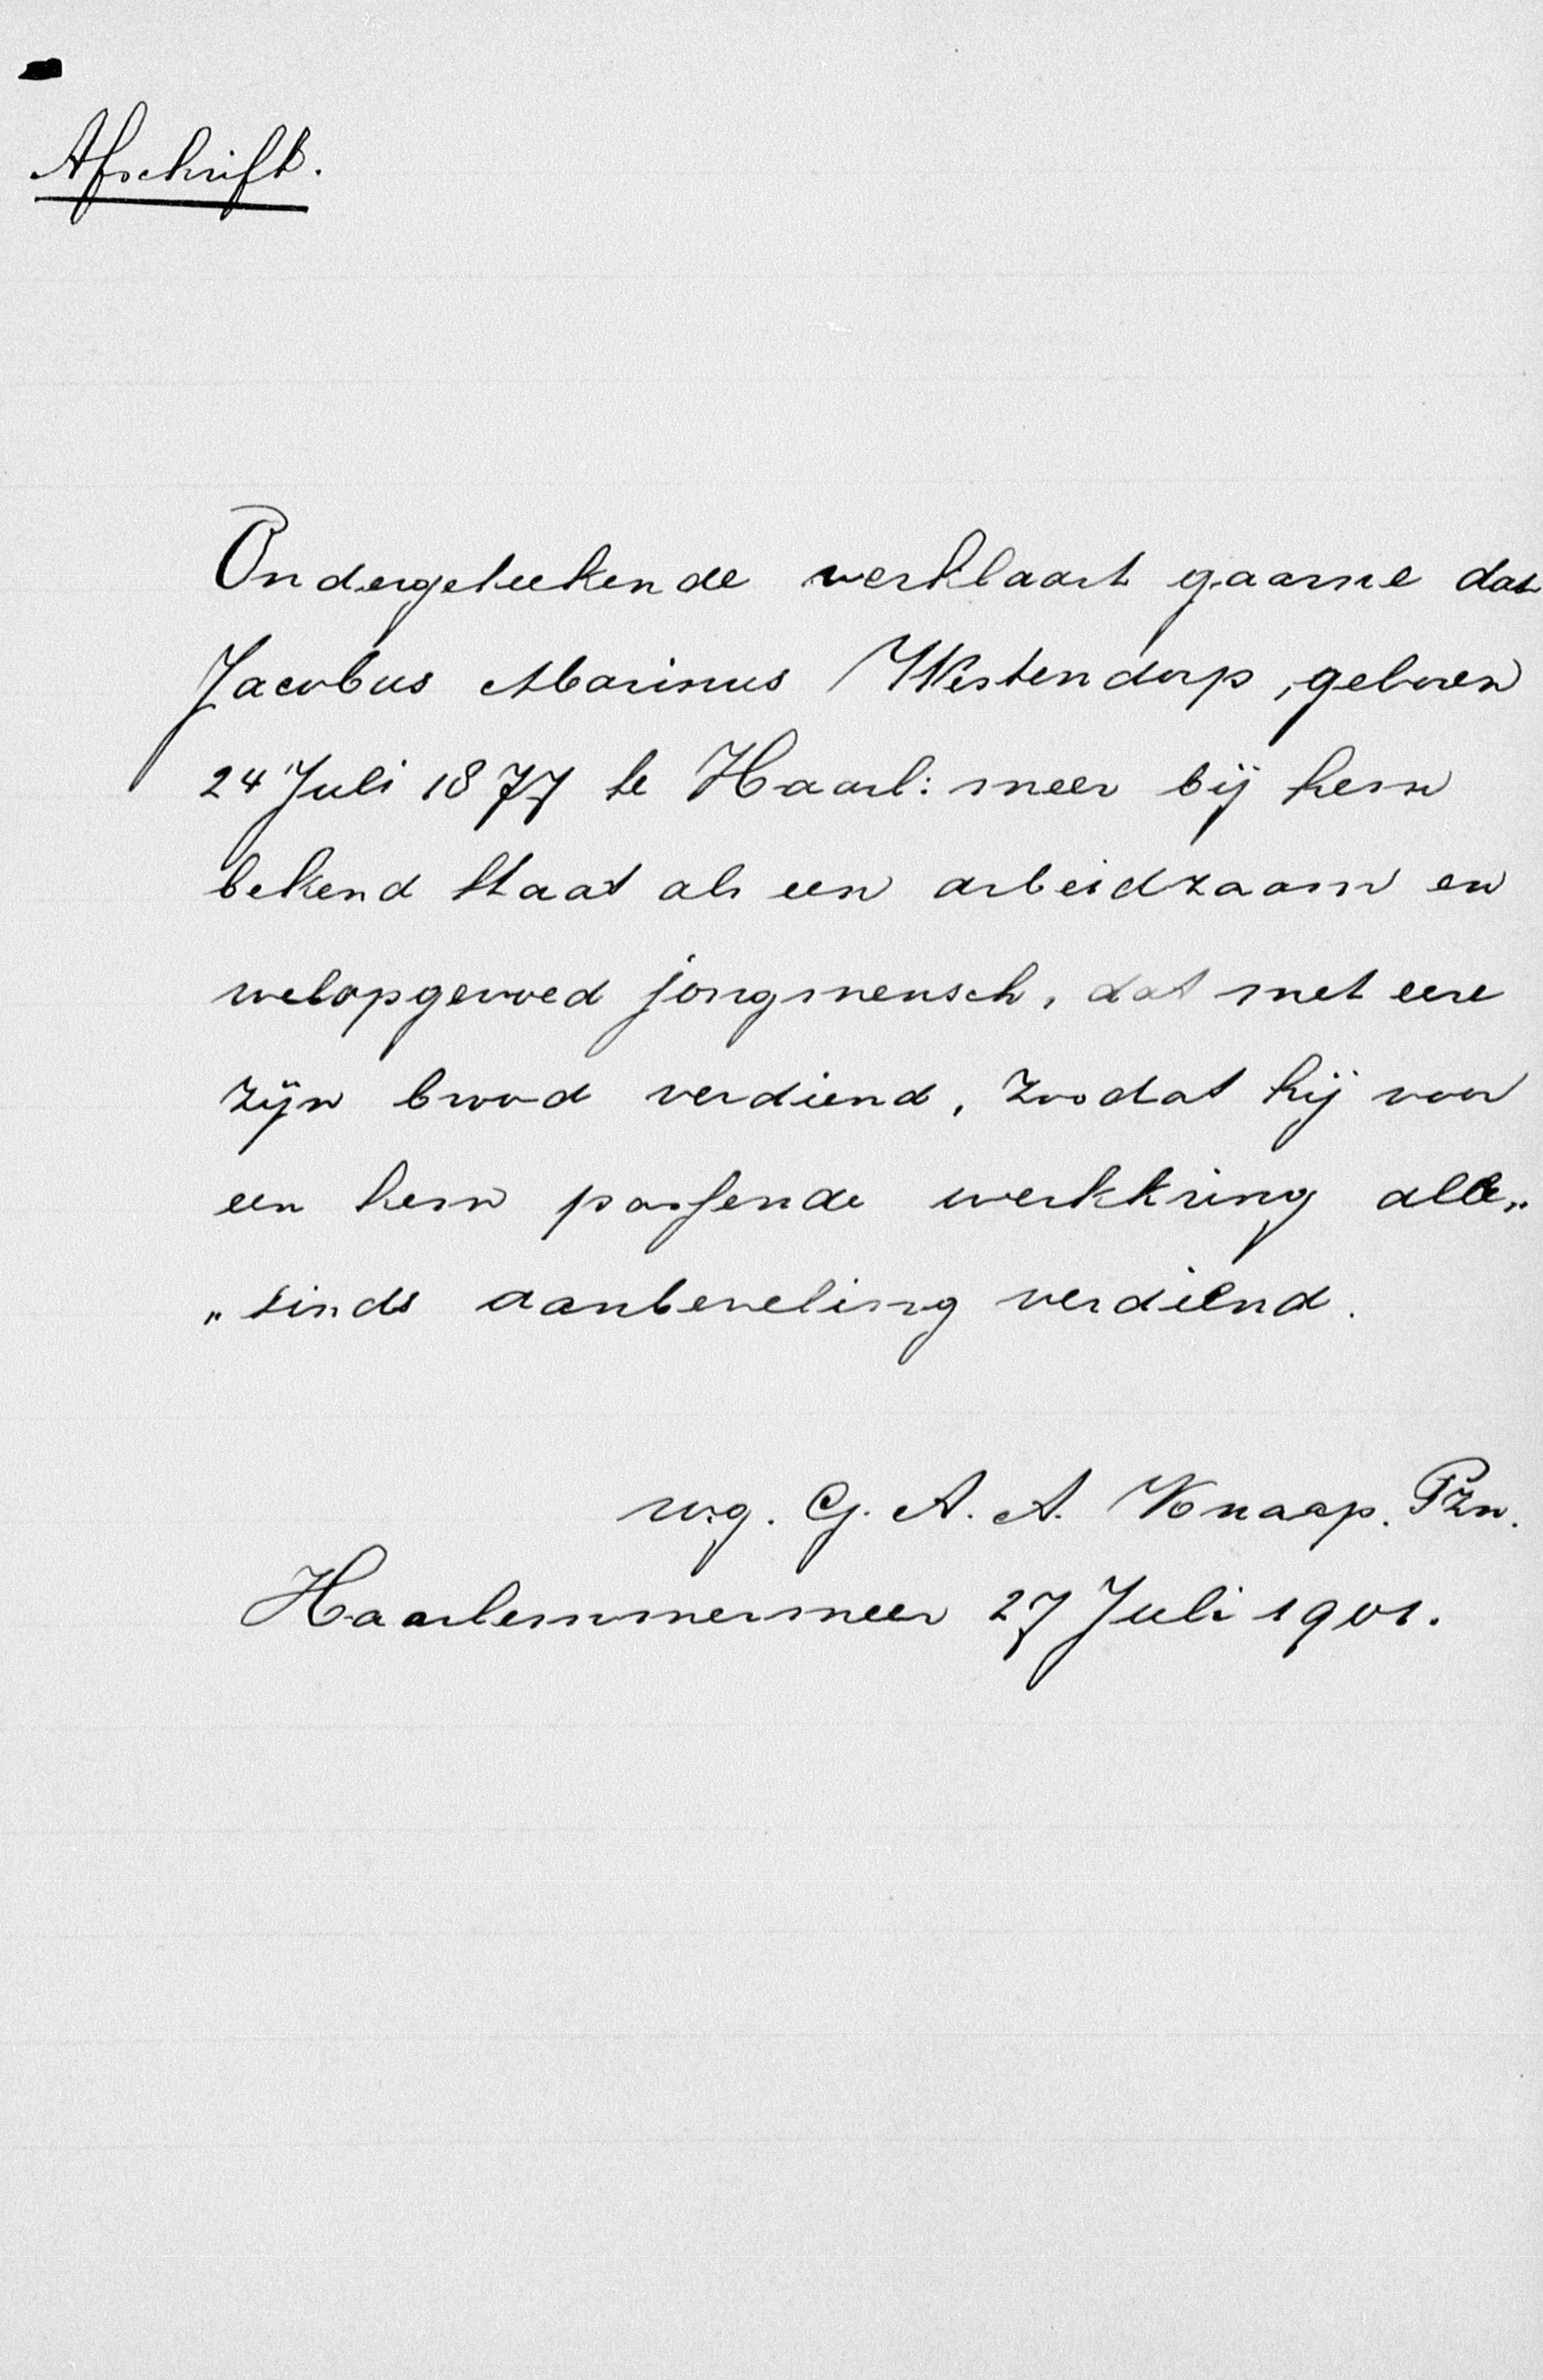 Afschrift.
Ondergeteekende verklaart gaarne dat
Jacobus Marinus Westendorp, geboren
24 Juli 1877 te Haarl: meer bij hem
bekend staat als een arbeidzaam en
welopgevoed jongmensch, dat met eere
zijn brood verdiend, zoodat hij voor
een hem passende werkkring alle„
„zinds aanbeveling verdiend.
w.g. G. A. A. Knaap. Pzn.
Haarlemmermeer 27 Juli 1901.